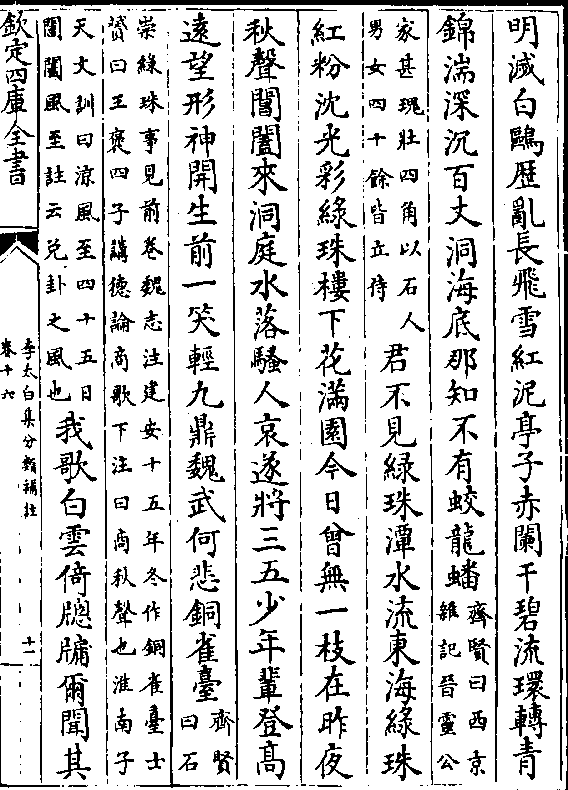 明滅白鷗歴亂長飛雪紅泥亭子赤闌干碧流環轉青
錦湍深沉百丈洞海底那知不有蛟龍蟠
齊賢曰西京
雜記晉靈公
家甚瑰壯四角以石人
男女四十餘皆立侍
君不見綠珠潭水流東海綠珠
紅粉沈光彩綠珠樓下花滿園今日曾無一枝在昨夜
秋聲閶闔來洞庭水落騷人哀遂將三五少年輩登髙
遠望形神開生前一笑輕九鼎魏武何悲銅雀臺
齊賢
曰石
崇綠珠事見前卷魏志注建安十五年冬作銅雀臺士
贇曰王褒四子講德論商歌下注曰商秋聲也淮南子
天文訓曰涼風至四十五日
閶闔風至註云兊卦之風也
我歌白雲倚牕牖爾聞其
欽定四庫全書
李太白集分類補註
卷十六
十一